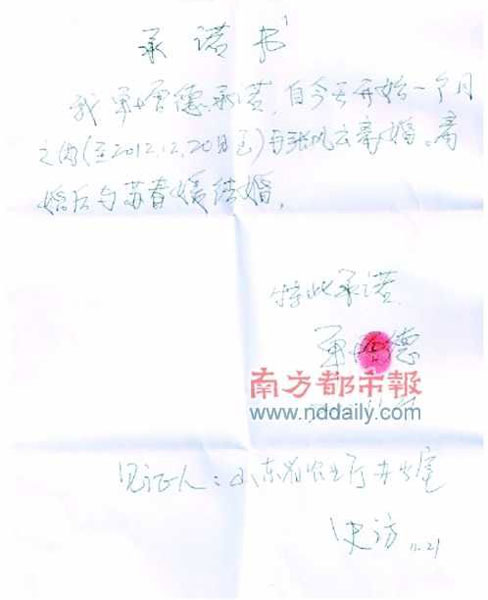 承诺书
我单增德承诺，自今天开始一个月
之内(至2012.12.20日至)与张凤云离婚。离
婚后与苏春媛结婚。
特此承诺
单增德
南方都市報
www.nddaily.com
见证人：山东省农业厅办公室
史访 11.21